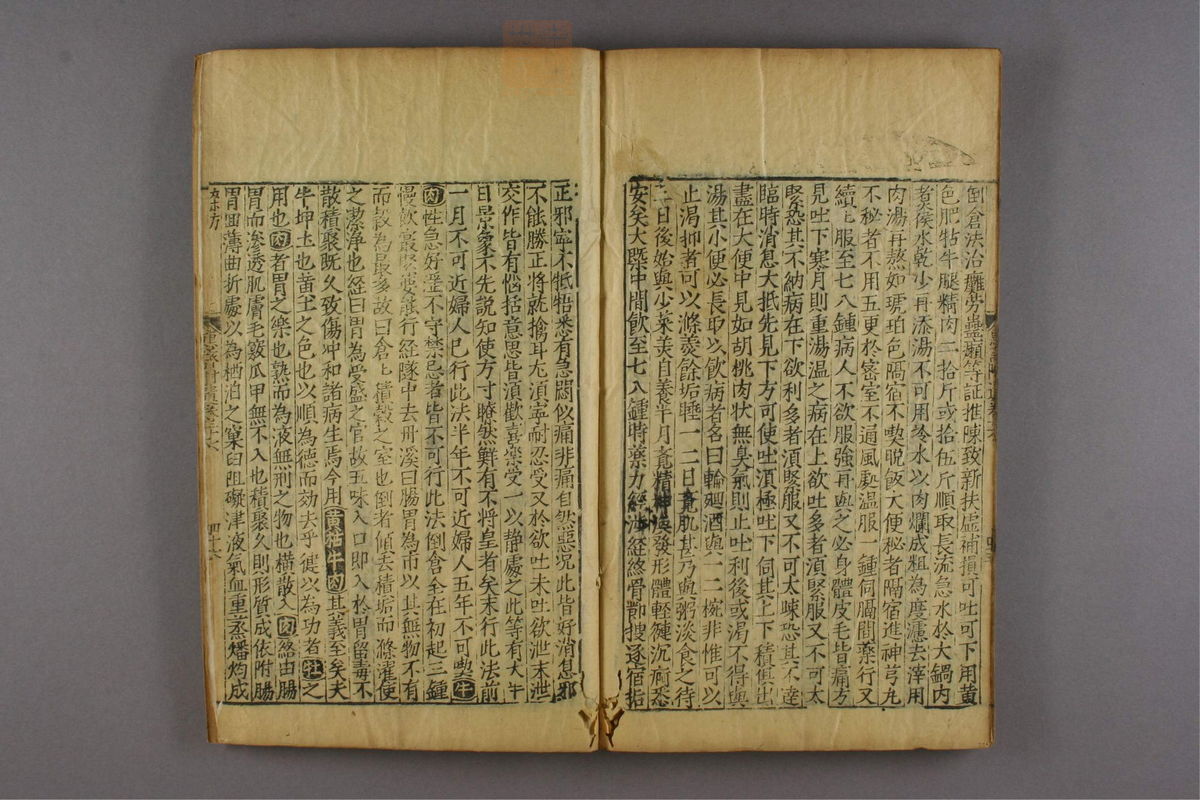 倒倉法治癱勞蠱癩等証推陳致新扶虛補損可吐可下用黃
色肥牯牛腿精肉二拾斤或拾伍斤順取長流急水於大鍋內
者候水乾少再添湯不可用冷水以肉爛成粗為度濾去滓用
肉湯再熬如琥珀色隔宿不喫晚飯大便秘者隔宿進神芎丸
不秘者不用五更於密室不通風處溫服一鍾伺膈間藥行又
續續服至七八鍾病人不欲服強再與之必身體皮毛皆痛方
見吐下寒月則重湯溫之病在上欲吐多者須緊服又不可太
緊恐其不納病在下欲利多者須緊服又不可太疎恐其不達
臨時消息大抵先見下方可使吐須極吐下伺其上下積俱出
盡在大便中見如胡桃肉狀無臭氣則止吐利後或渴不得與
湯其小便必長取以飲病者名曰輪廻酒與一二椀非惟可以
止渴抑者可以滌羨餘垢睡一二日覺肌甚乃與粥淡食之待
三日後始與少菜羹自養半月竟精神渙發形體輕徤沉痾悉
安矣大槩中間飲至七八鍾時藥力經涉經絡骨節搜逐宿垢
正邪寧不牴牾悉有急悶似痛非痛自然惡况此皆好消息邪
不能勝正將就擒耳尤須寧耐忍受又於欲吐未吐欲泄未泄
交作皆有惱括意思皆須歡喜樂受一以静處之此等有大半
日景象不先說知使方寸瞭然鮮有不將皇者矣未行此法前
一月不可近婦人已行此法半年不可近婦人五年不可喫牛
肉性急好淫不守禁忌者皆不可行此法倒倉全在初起三鍾
慢飲最緊要能行經隊中去丹溪曰腸胃為市以其無物不有
而穀為最多故曰倉倉積穀之室也倒者傾去積垢而滌濯使
之潔淨也經曰胃為受盛之官故五味入口即入於胃留毒不
散積聚既久致傷冲和諸病生焉今用黃牯牛肉其義至矣夫
牛坤土也黃土之色也以順為德而効去乎徤以為功者牡之
用也肉者胃之樂也熟而為液無形之物也橫散入肉絡由腸
胃而滲透肌膚毛竅爪甲無不入也積聚久則形質成依附腸
胃回薄曲折處以為栖泊之窠臼阻礙津液氣血重蒸燔灼成